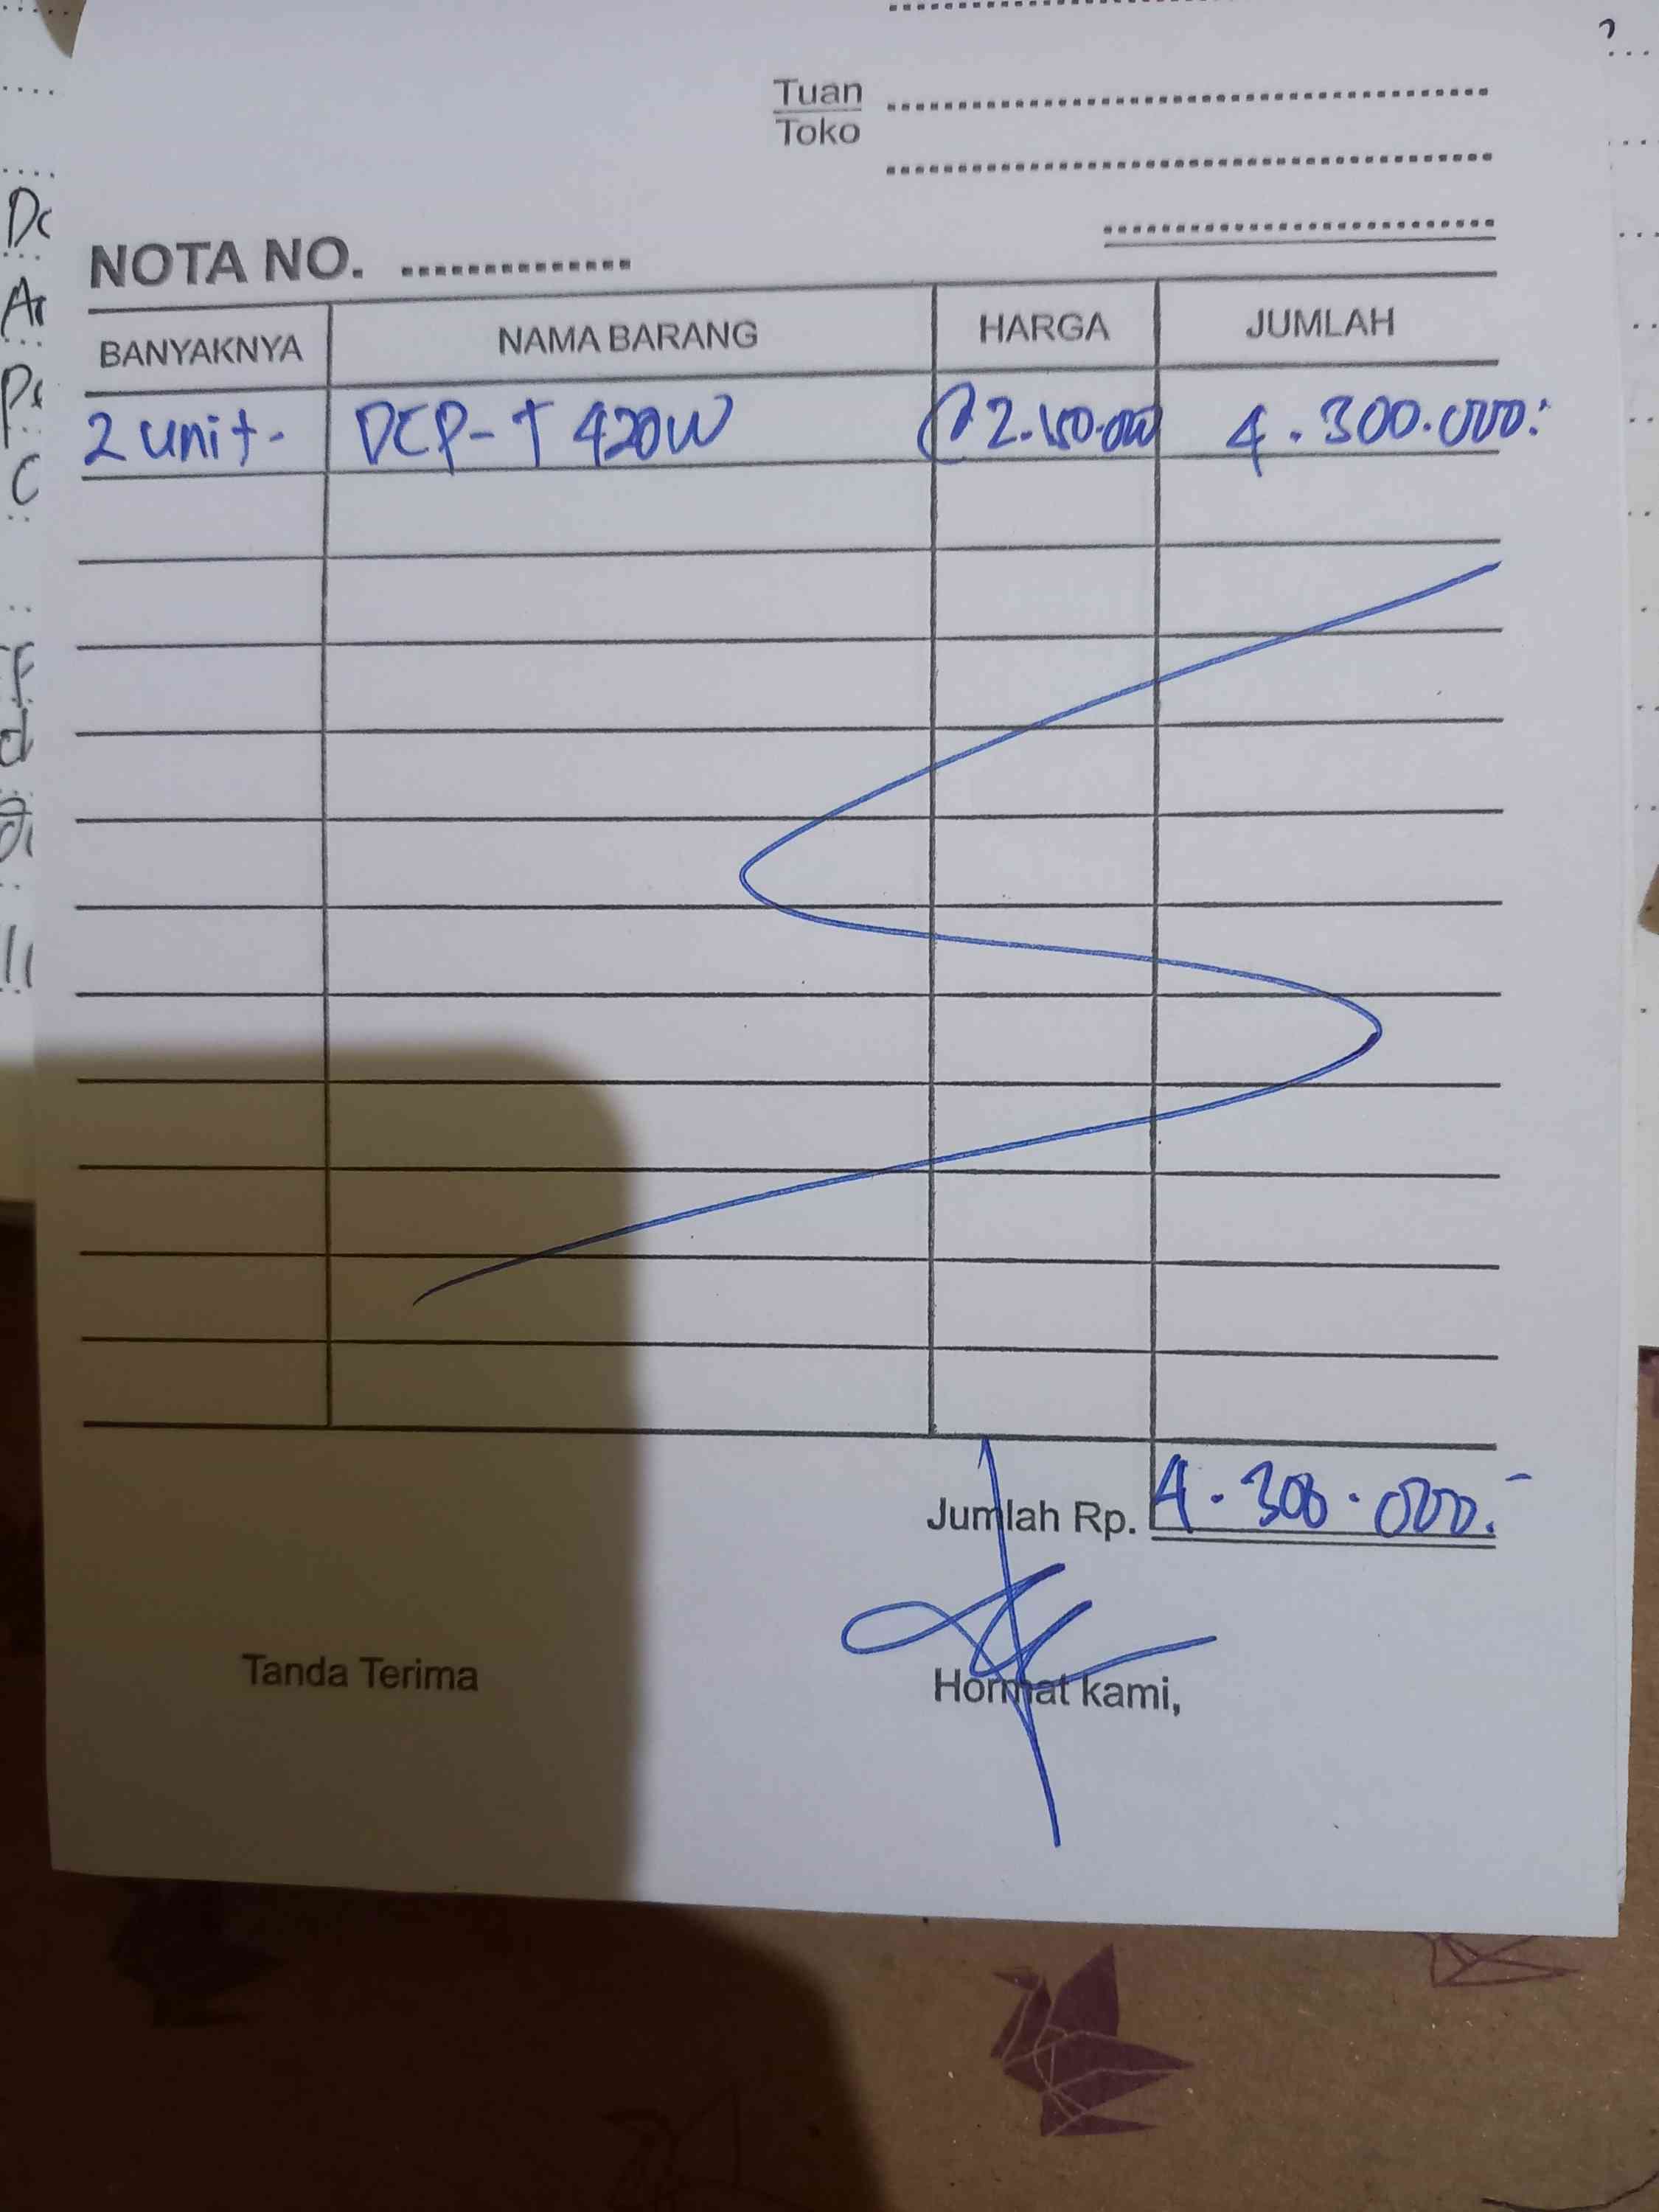 Tuan
Toko
NOTA NO.
BANYAKNYA NAMA BARANG HARGA JUMLAH
2 unit- DCP-T 420W @2.150.000 4.300.000:
Jumlah Rp. 4.300.000.-
Tanda Terima Hormat kami,